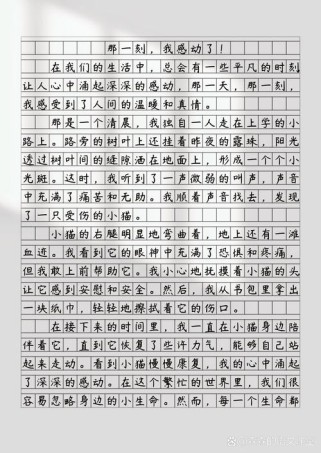 那一刻，我感动了！
在我们的生活中，总会有一些平凡的时刻
让人心中涌起深深的感动，那一天，那一刻，
我感受到了人间的温暖和真情。
那是一个清晨，我独自一人走在上学的小
路上。路旁的树叶上还挂着昨夜的露珠，阳光
透过树叶间的缝隙洒在地面上，形成一个个小
光斑。这时，我听到了一声微弱的叫声，声音
中充满了痛苦和无助。我顺着声音找去，发现
了一只受伤的小猫。
小猫的右腿明显地弯曲着，地上还有一滩
血迹。我看到它的眼神中充满了恐惧和疼痛，
但我敢上前帮助它。我小心地抚摸着小猫的头
让它感到安慰和安全。然后，我从书包里拿出
一块纸巾，轻轻地擦拭着它的伤口。
在接下来的时间里，我一直在小猫身边陪
伴着它，直到它恢复了些许力气，能够自己站
起来走动。看到小猫慢慢康复，我的心中涌起
了深深的感动。在这个繁忙的世界里，我们很
容易忽略身边的小生命。然而，每一个生命都